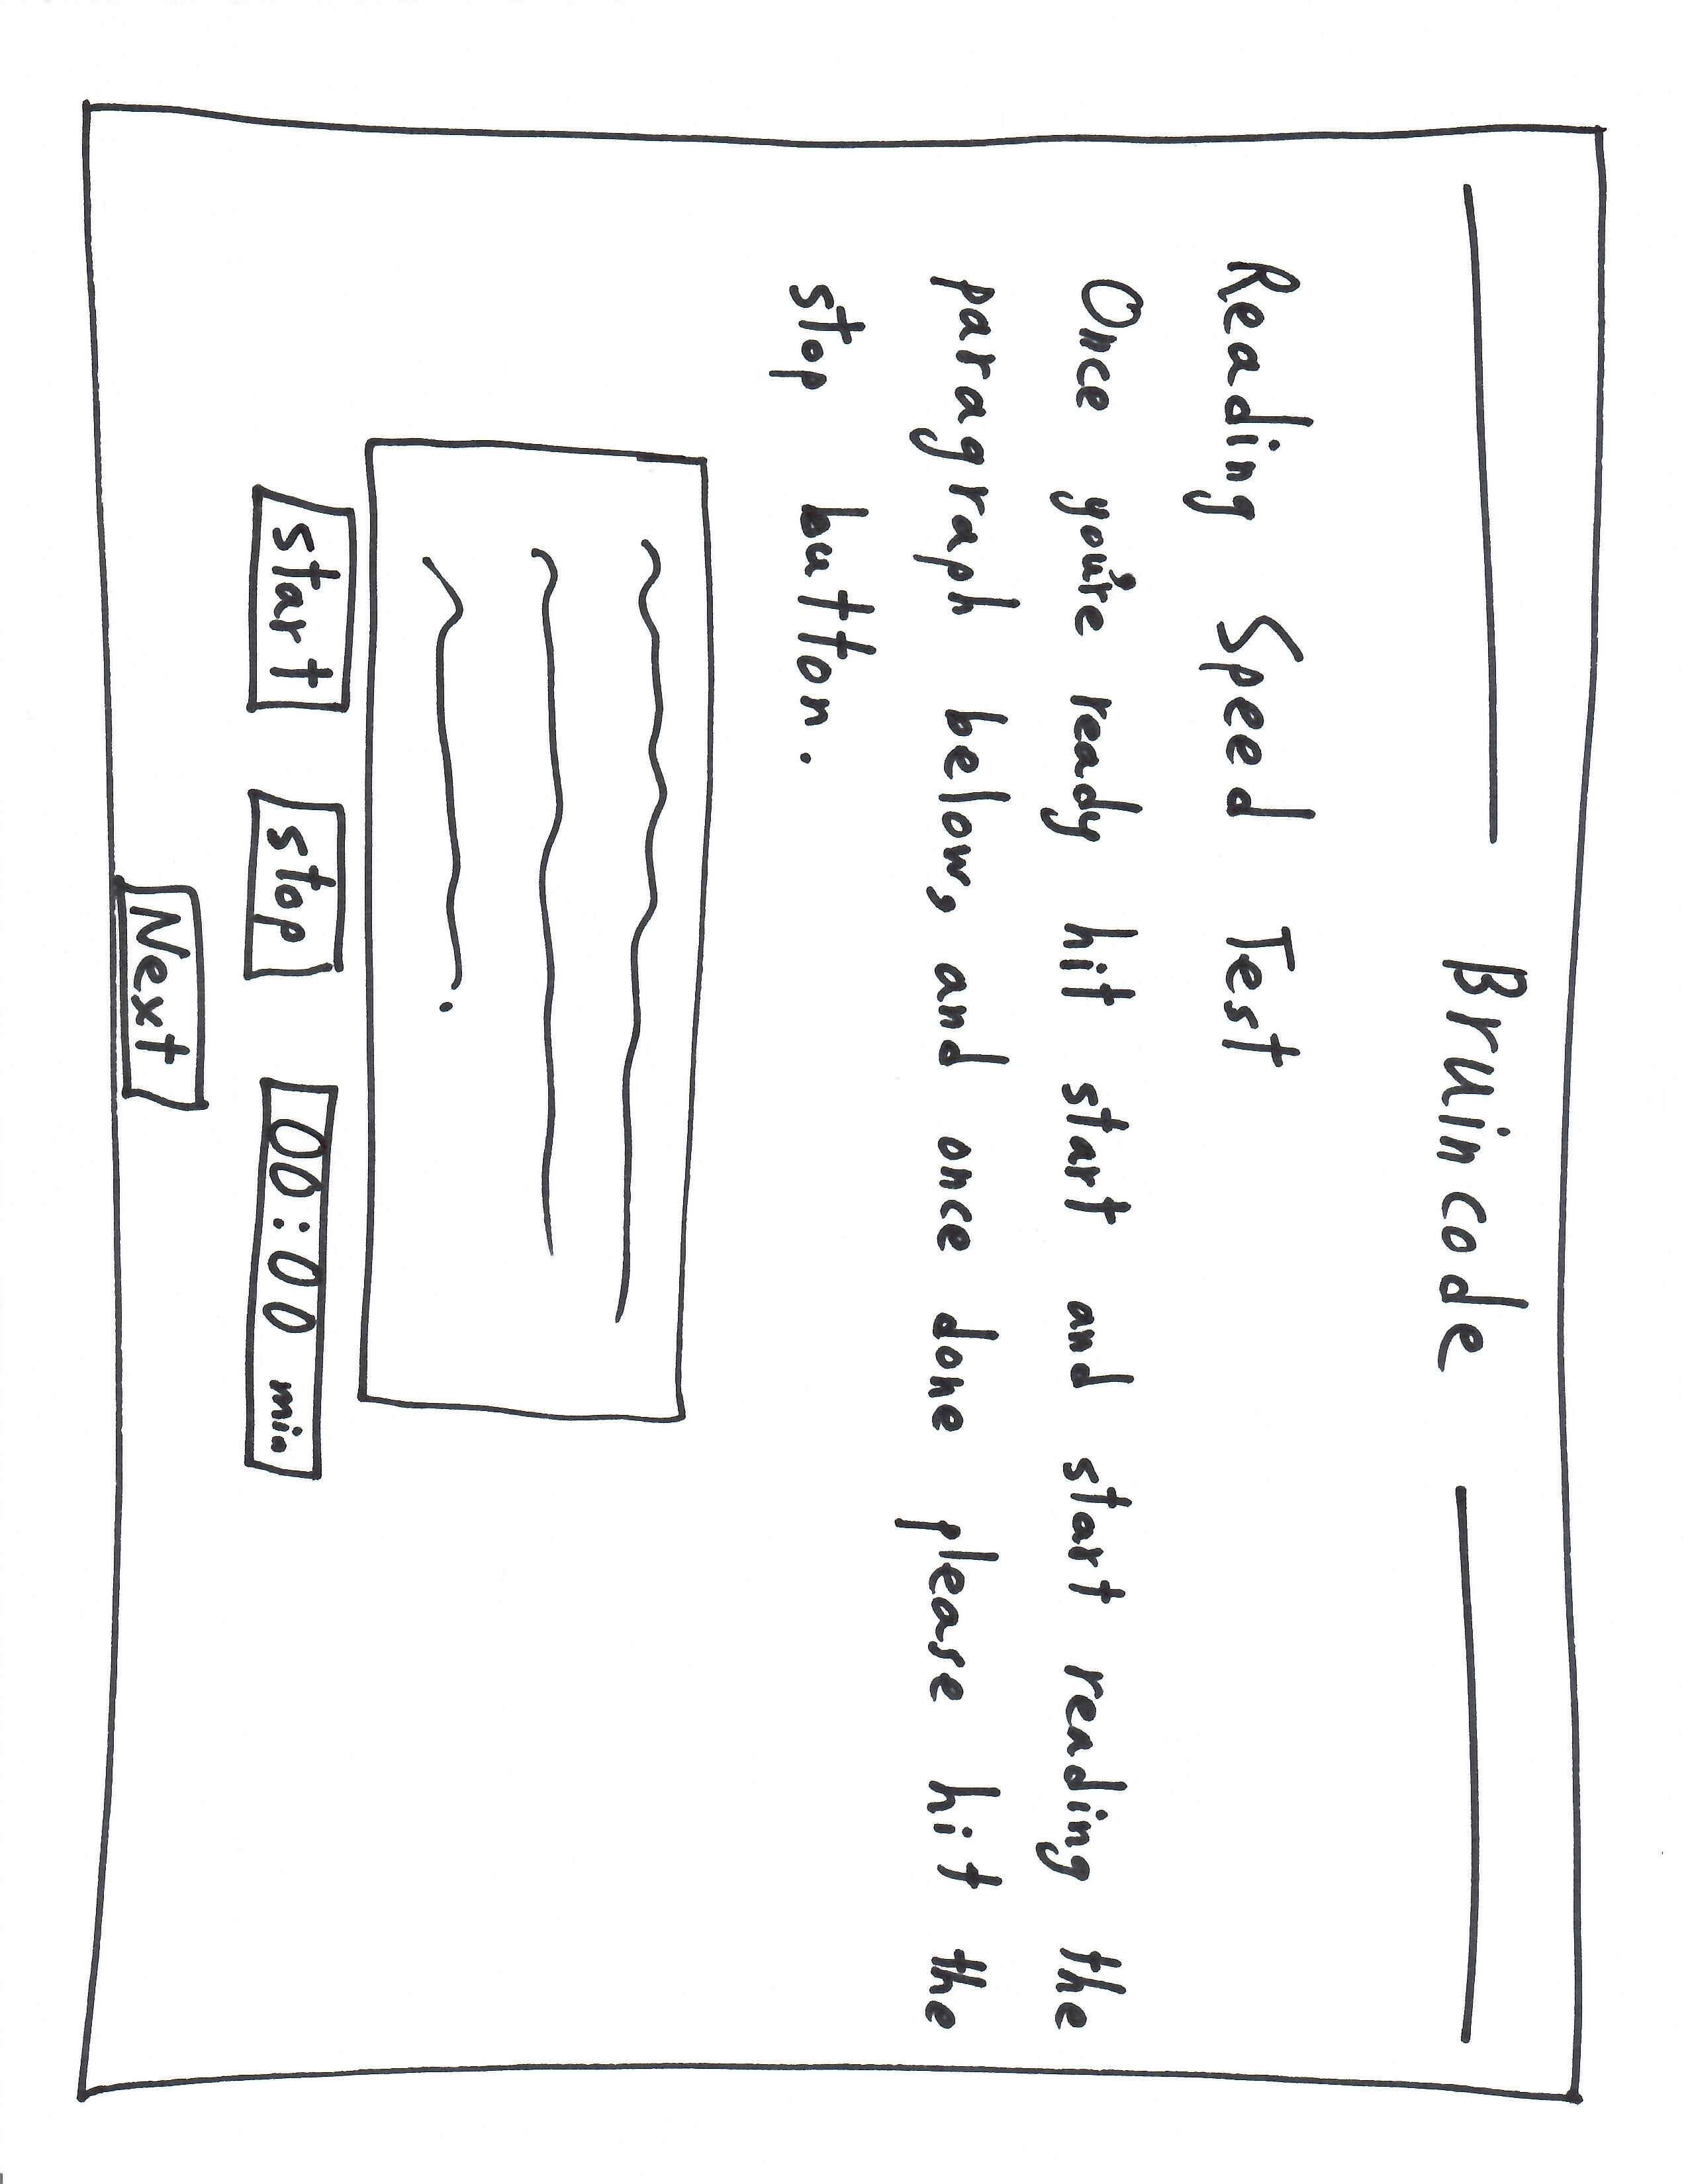 Bruincode
Reading Speed Test
Once you're ready hit start and start reading the
paragraph below, and once done please hit the
stop button.
start stop 00:00 min
Next